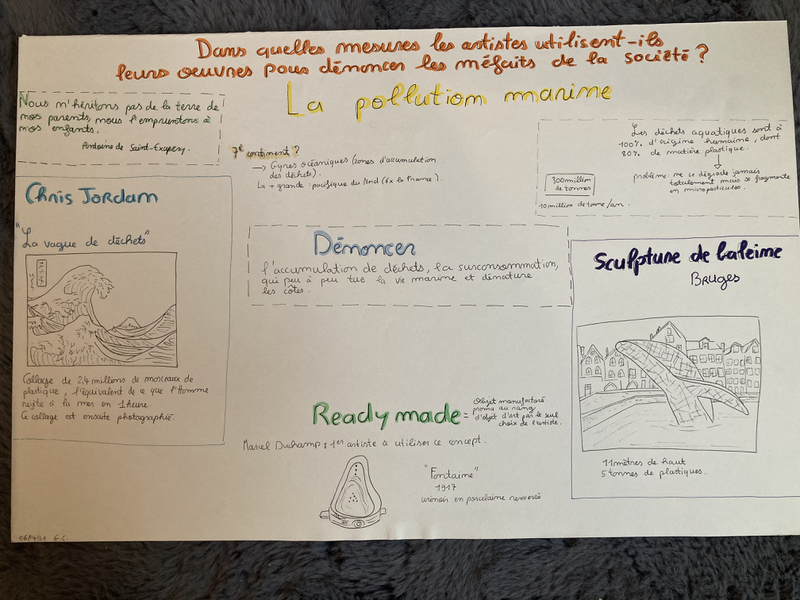 Dans quelles mesures les artistes utilisent-ils
leurs oeuvres pour dénoncer les méfaits de la société ?
La pollution marine
Nous n'héritons pas de la terre de
nos parents, nous l'empruntons à
nos enfants.
Antoine de Saint-Exupéry.
7e continent ?
→ Gyres océaniques (zones d'accumulation
des déchets).
La + grande : pacifique du Nord (6x la France).
Les déchets aquatiques sont à
100% d'origine humaine, dont
80% de matière plastique.
problème : ne se dégrade jamais
totalement mais se fragmente
en microparticules.
300 million
de tonnes
10 million de tonne/an.
Chris Jordan
"La vague de déchets"
Collage de 2,4 millions de morceaux de
plastique, l'équivalent de ce que l'Homme
rejète à la mer en 1 heure
Ce collage est ensuite photographié.
Dénoncer
l'accumulation de déchets, la surconsommation,
qui peu à peu tue la vie marine et dénature
les côtes.
Sculpture de baleine
Bruges
11 mètres de haut
5 tonnes de plastiques.
Ready made = objet manufacturé
promu au rang
d'objet d'art par le seul
choix de l'artiste.
Marcel Duchamp : 1er artiste à utiliser ce concept.
"Fontaine"
1917
urinoir en porcelaine renversé
G.C.